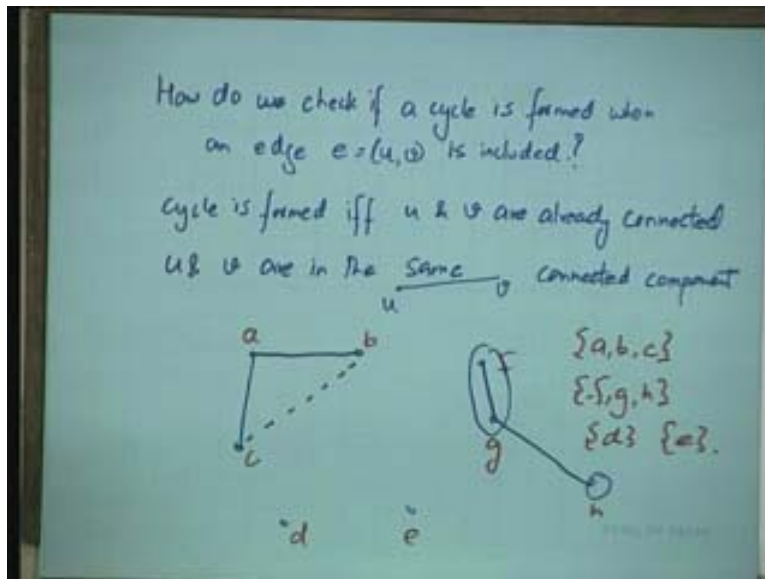 How do we check if a cycle is formed when
an edge e=(u,v) is included?
Cycle is formed iff u & v are already connected
u & v are in the same connected component
u v
a b
f
{a,b,c}
{f,g,h}
{d} {e}.
c
g
h
d e